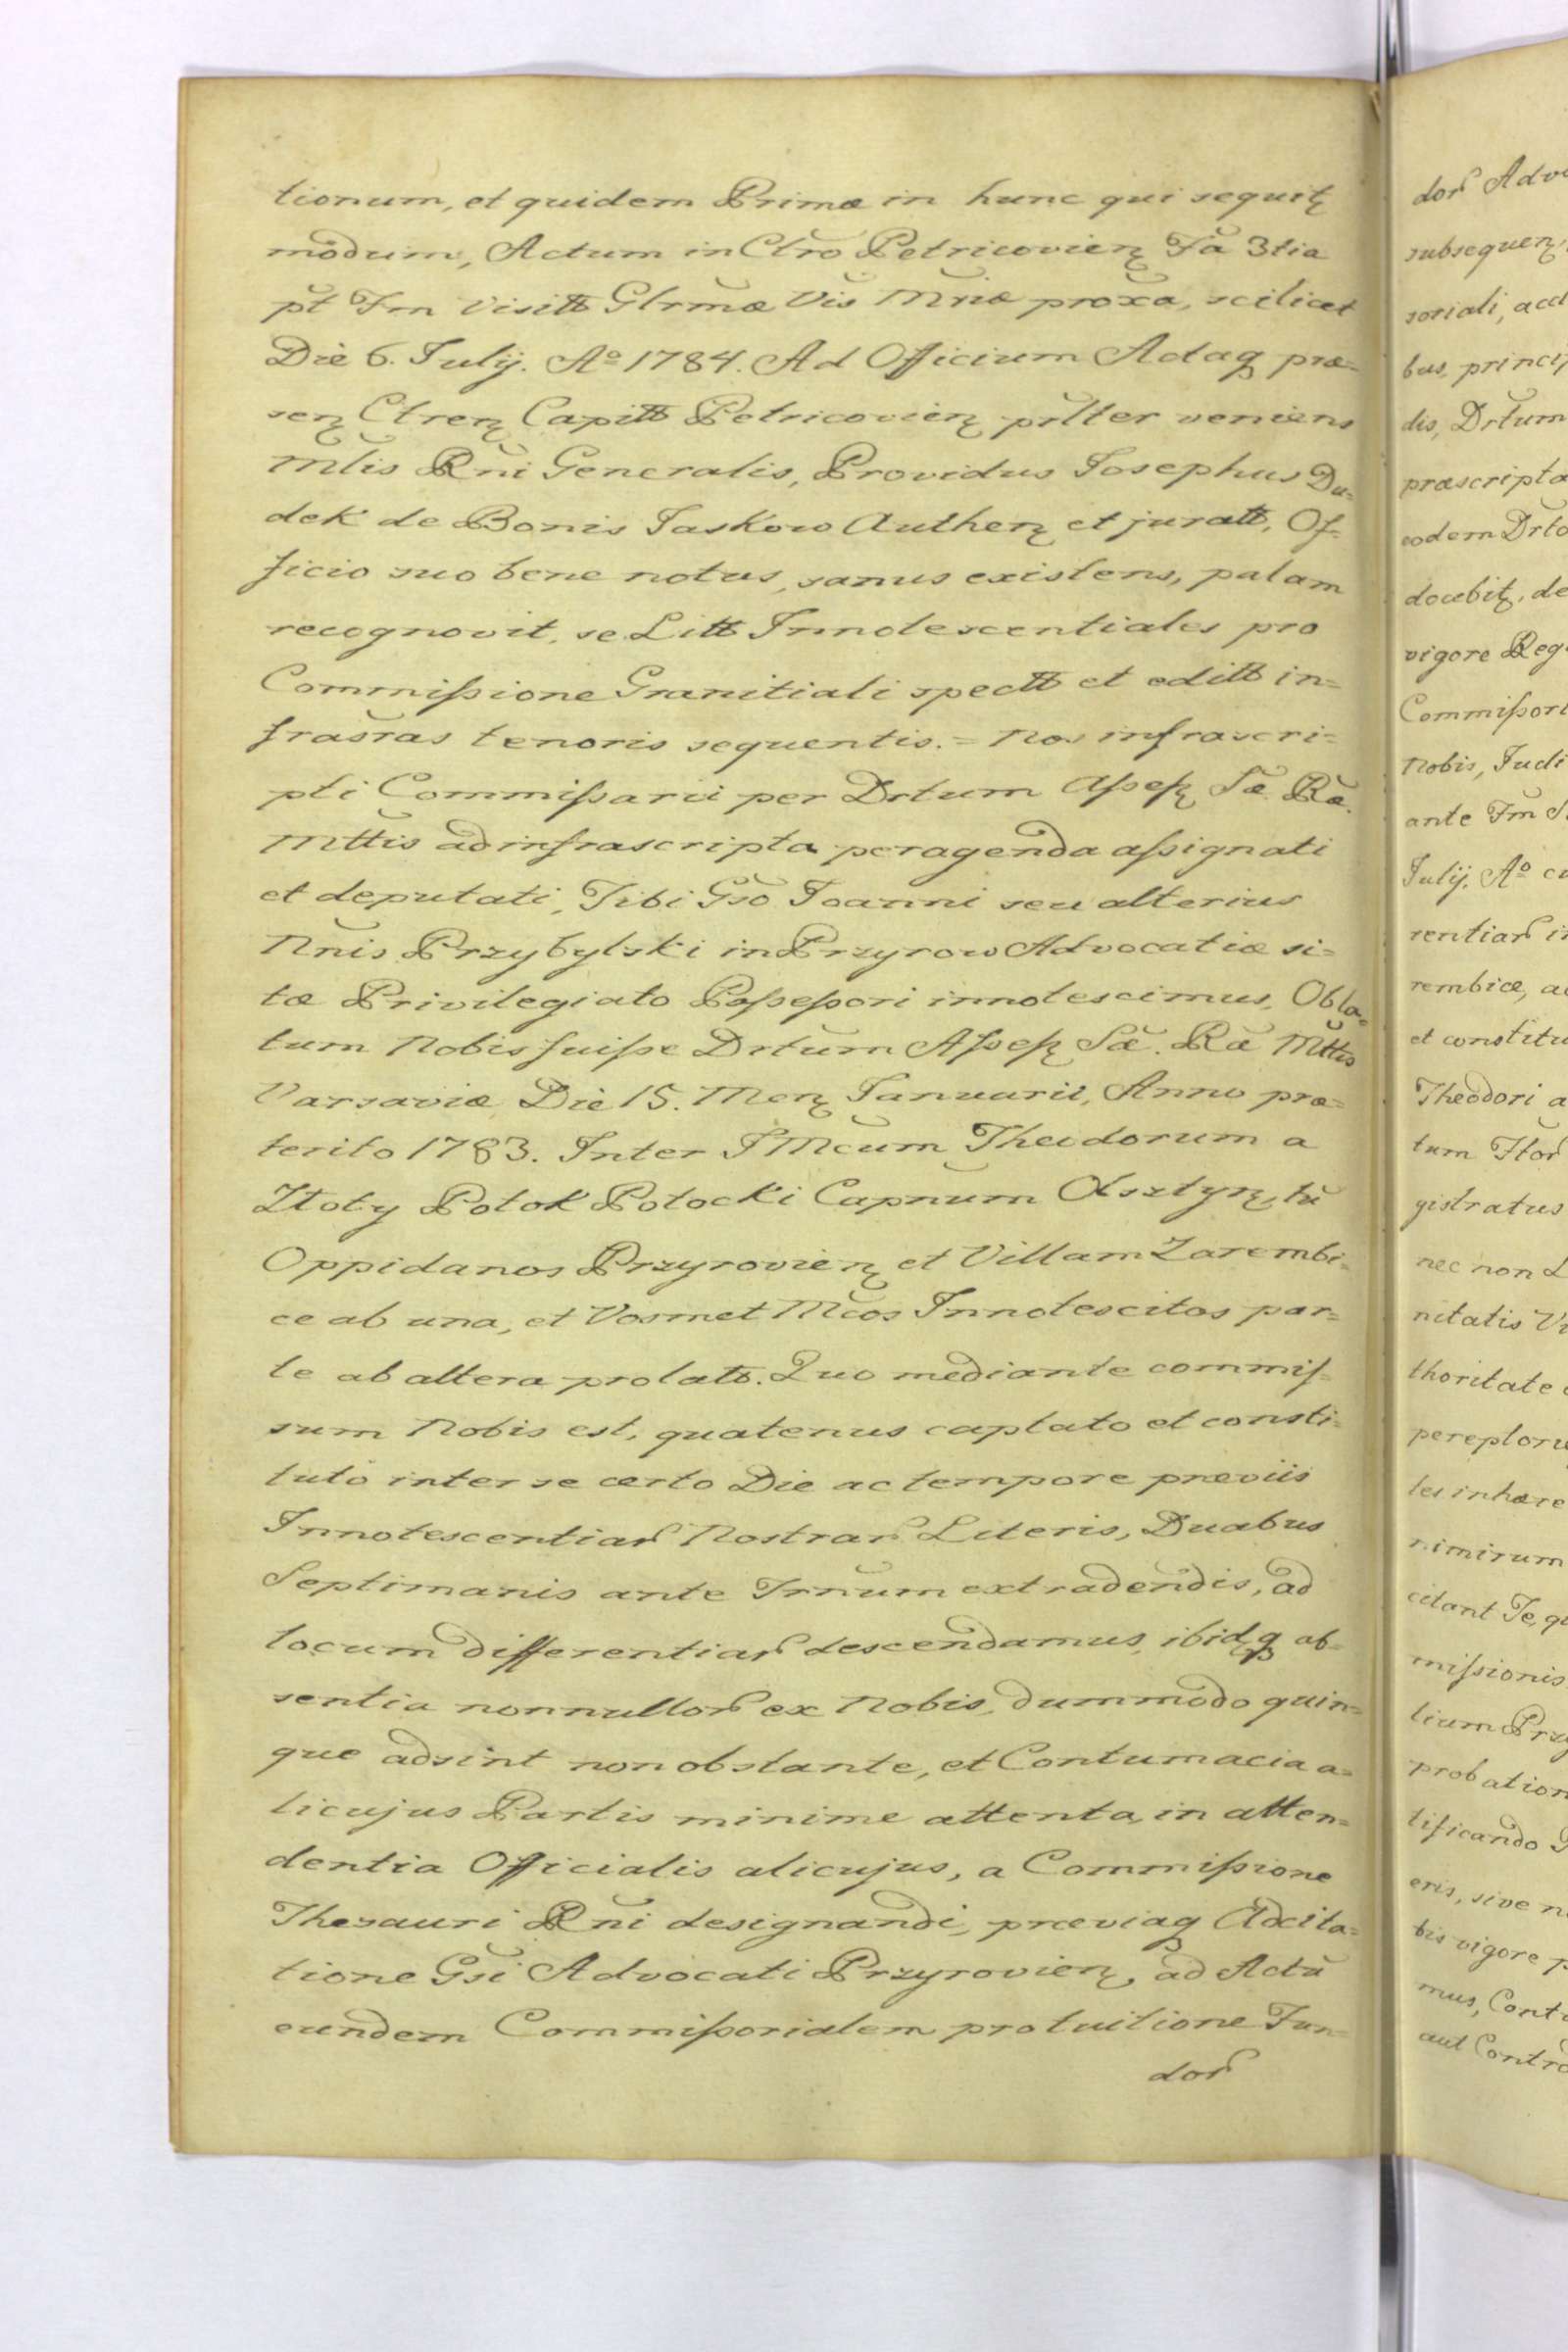 tionum, et quidem Primæ in hunc qui sequitꝛ
modum, Actum in Ctro Petricovienꝛ Fã 3tia
pt̃ Fm Visitt Glrmæ Vis Mriæ proxa, scilicet
Die 6. Julij. Aº 1784. Ad Officium Adaqꝫ præ=
senꝛ Ctrenꝛ Capitt Petricovienꝛ prltter veniens
Mtis Rñi Generalis, Providus Josephus Du=
dek de Bonis Jaskow Authenꝛ et juratt, Of=
ficio suo bene notus, sanus existens, palam
recognovit, se Litt Innotescentiales pro
Commiſsione Granitiali spectt et editt in=
frasras tenoris sequentis. = Nos infrascri=
pti Commiſsarii per Drtum Aſseſꝛ Sæ Ræ
Mttis ad infrascripta peragenda aſsignati
et deputati, Tibi Gso Joanni seu alterius
Nnis Przybylski in Przyrow Advocatiæ si=
tæ Privilegiato Poſseſsori innotescimus, Obla=
tum Nobis fuiſse Drtum Aſseſꝛ Sæ. Ræ Mttis
Varsaviæ Die 15. Menꝛ Januarii, Anno præ=
terito 1783. Inter JMcum Theodorum a
Złoty Potok Potocki Capnum Olsztynꝛ, tũ
Oppidanos Przyrovienꝛ et Villam Zarembi=
ce ab una, et Vosmet Mcos Innotescitos par=
te ab altera prolatt. Quo mediante commiſ=
sum Nobis est, quatenus captato et consti=
tuto inter se certo Die ac tempore præviis
Innotescentiarꝭ Nostrarꝭ Literis, Duabus
Septimanis ante Trnum extradendis, ad
locum differentiarꝭ descendamus, ibidqꝫ ab=
sentia nonnullorꝭ ex Nobis, dummodo quin=
que adsint non obstante, et Contumacia a=
licujus Partis minime attenta, in atten=
dentia Officialis alicujus, a Commiſsione
Thesauri Rñi designandi, præviaqꝫ Adcita=
tione Gsi Advocati Przyrovienꝛ, ad Actũ
eundem Commiſsorialem pro tuitione Fun=
dorꝭ
dorꝭ
subsequenꝛ
soriali,
bus, princi
dis, Drtum
præscripta
eodem Drto
docebitꝛ, de
vigore Reg
Commiſsori
Nobis, Judi
ante Fm
Julij. Aº
rentiarꝭ
rembice,
et constitu
Theodori a
tum
gistratus
nec non
nitatis
thoritate
tes inhære
nimirum
citant Te,
miſsionis
probation
tificando
eris, sive
bis vigore
mus,
aut Contro